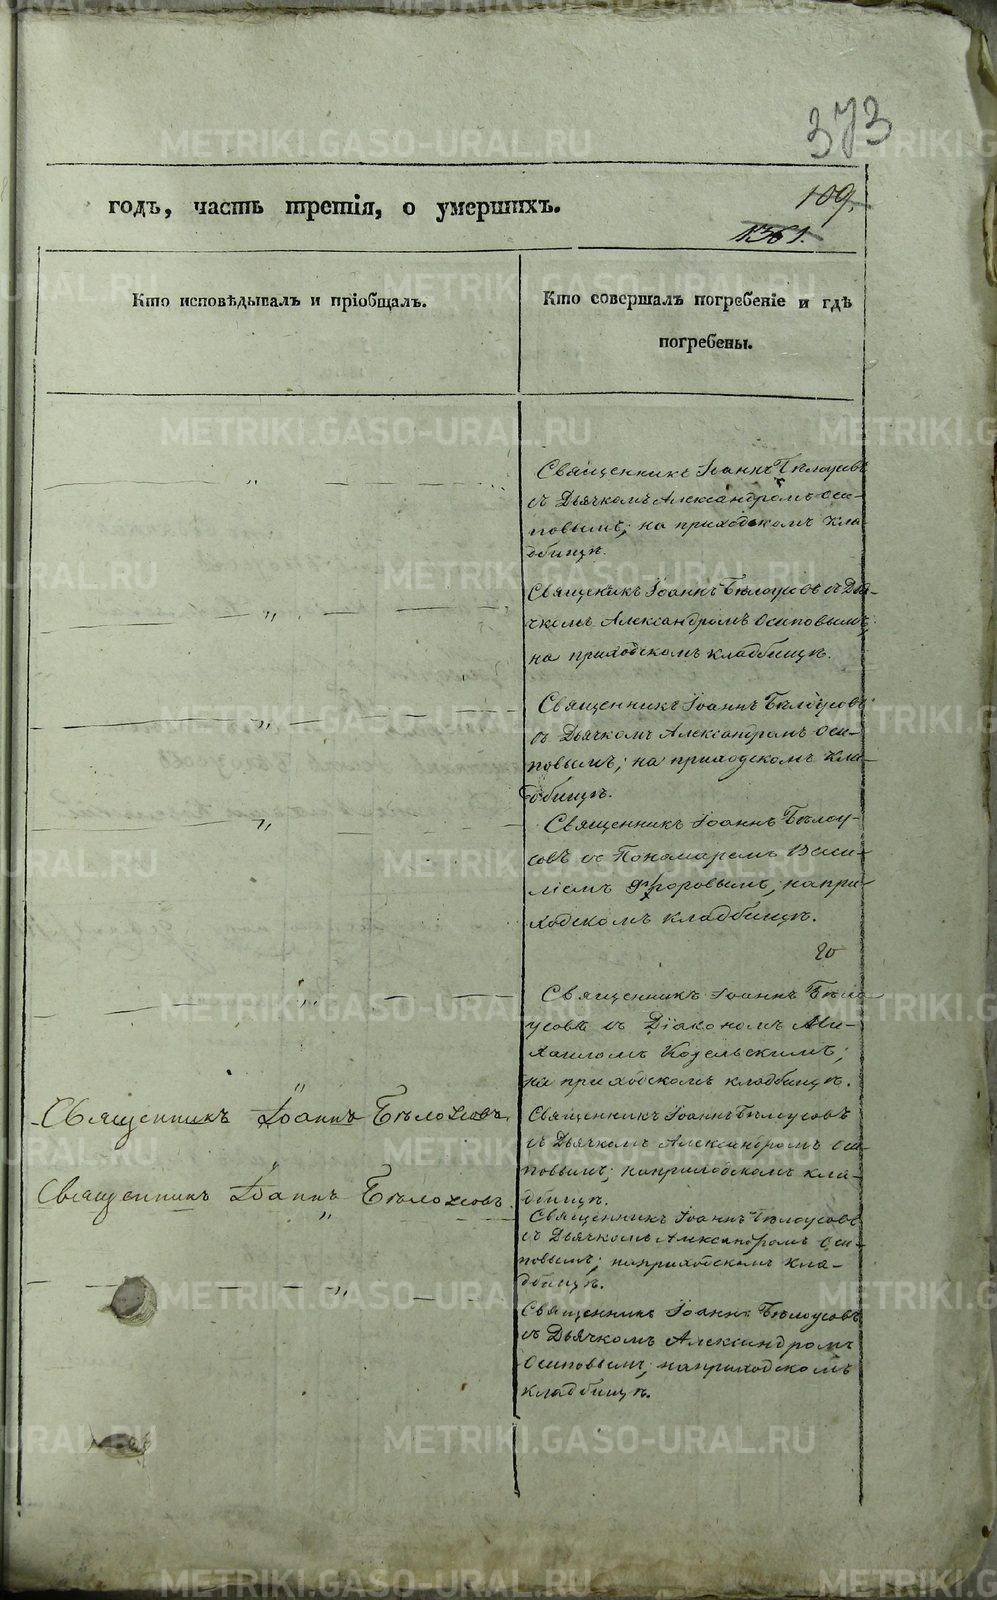 373
годъ, часть третія, о умершихъ.
109.
1361.
Кто исповѣдывалъ и пріобщалъ.
Кто совершалъ погребеніе и гдѣ
погребены.
— — — „ — — —
Священникъ Іоаннъ Бѣлоусовъ
съ Дьячкомъ Александромъ Оси-
повымъ; на приходскомъ кла-
дбищѣ.
— — — „ — — —
Священикъ Іоаннъ Бѣлоусовъ съ Дья-
чкомъ Александромъ Осиповымъ;
на приходскомъ кладбищѣ.
— — — „ — — —
Священникъ Іоаннъ Бѣлоусовъ
съ Дьячкомъ Александромъ Оси-
повымъ; на приходскомъ кла-
дбищѣ.
— — — „ — — —
Священникъ Іоаннъ Бѣлоу-
совъ съ Пономаремъ Васи-
ліемъ Флоровымъ, на при-
ходскомъ кладбищѣ.
— — — „ — — —
Священникъ Іоаннъ Бѣло
усовъ съ Діакономъ Ми-
хаиломъ Козельскимъ;
на приходскомъ кладбищѣ.
Священникъ Іоаннъ Бѣлоусовъ
Священникъ Іоаннъ Бѣлоусовъ
съ Дьячкомъ Александромъ Оси-
повымъ; на приходскомъ кла-
дбищѣ.
Священникъ Іоаннъ Бѣлоусовъ.
Священникъ Іоаннъ Бѣлоусовъ
съ Дьячкомъ Александромъ Оси-
повымъ; на приходскомъ кла-
дбищѣ.
— — — „ — — —
Священникъ Іоаннъ Бѣлоусовъ
съ Дьячкомъ Александромъ
Осиповымъ; на приходскомъ
кладбищѣ.
METRIKI.GASO-URAL.RU